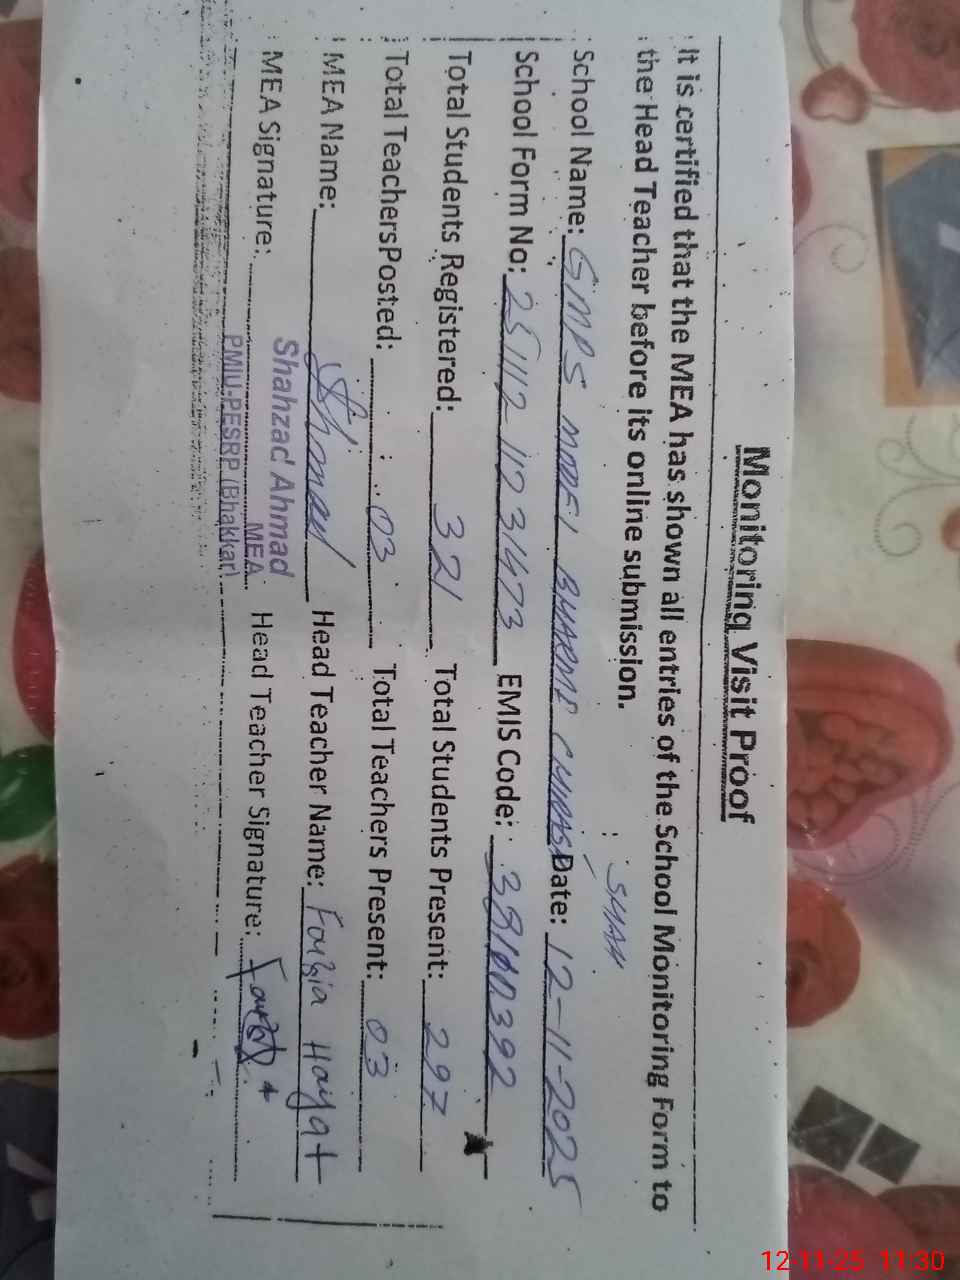 Monitoring Visit Proof
It is certified that the MEA has shown all entries of the School Monitoring Form to
the Head Teacher before its online submission.
SHAH
School Name: GMPS MODEL Date: 12-11-2025
School Form No: EMIS Code: 38100392
Total Students Registered: 321 Total Students Present: 297
Total TeachersPosted: 03 Total Teachers Present: 03
MEA Name: Head Teacher Name: Fouzia Hayat
MEA Signature: Head Teacher Signature:
Shahzad Ahmad
MEA
PMIU-PESRP (Bhakkar)
12-11-25 11:30